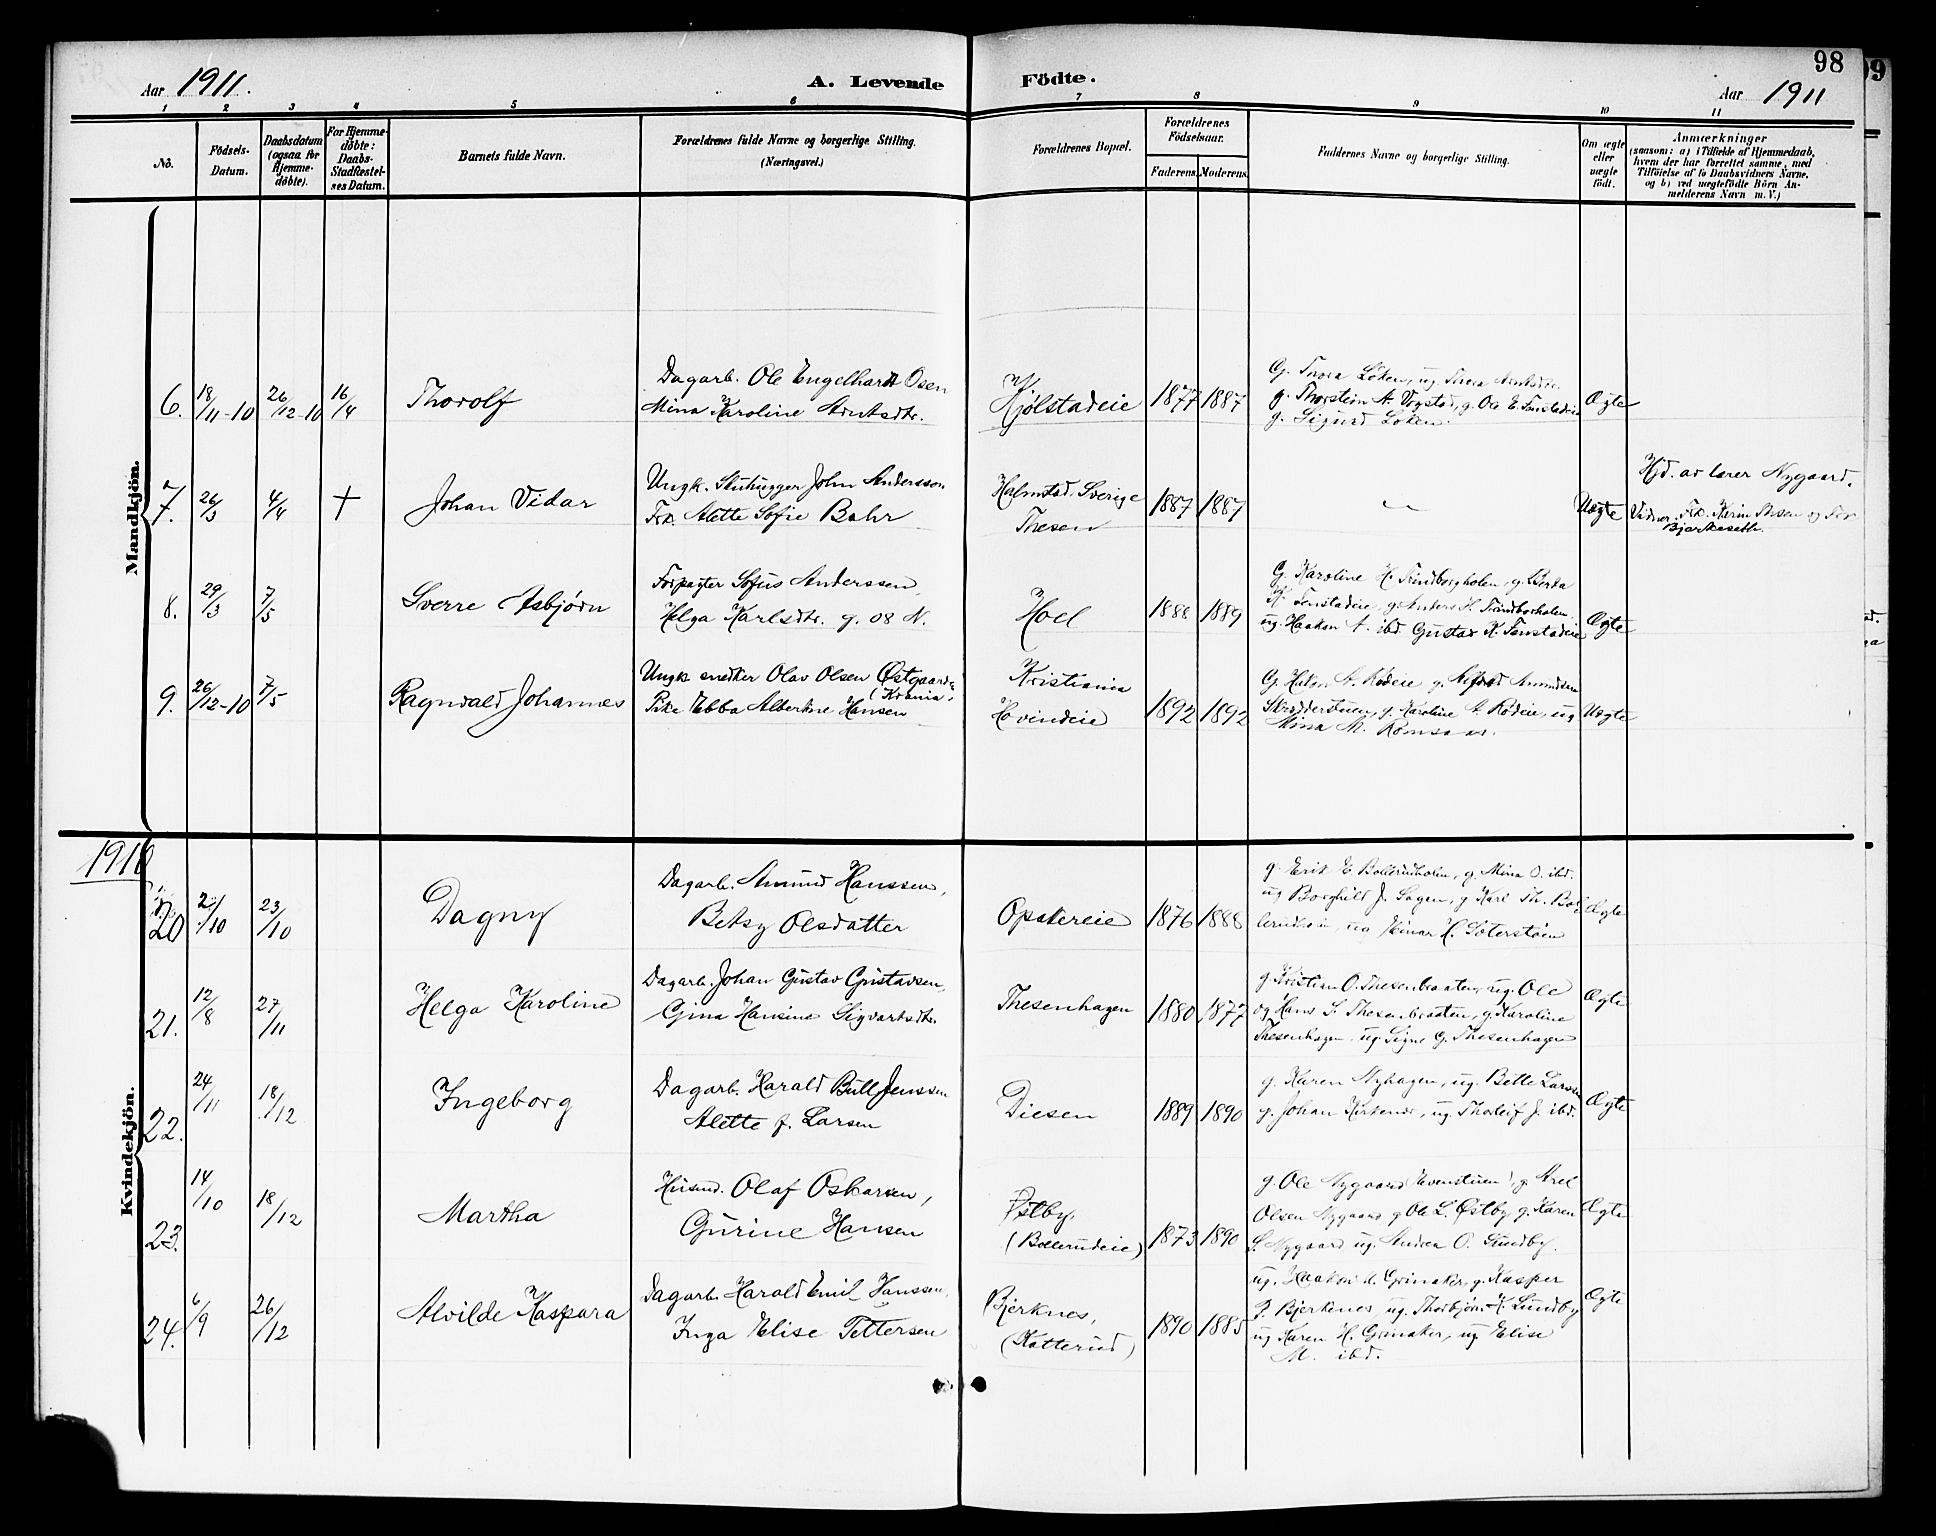 98
99
Aar 1911.
A. Levende Födte.
Aar 1911
1 2 3 4 5 6 7 8 9 10 11
No.
Födsels-
Datum.
Daabsdatum
(ogsaa for
Hjemme-
döbte).
For Hjemme-
döbte:
Daabs-
Stadfæstel-
ses Datum.
Barnets fulde Navn.
Forældrenes fulde Navne og borgerlige Stilling.
(Næringsvei.)
Forældrenes Bopæl.
Forældrenes
Födselsaar.
Faderens. Moderens.
Faddernes Navne og borgerlige Stilling.
Om ægte
eller
uægte
födt.
Anmærkninger
(saasom: a) i Tilfælde af Hjemmedaab,
hvem der har forrettet samme, med
Tilföielse af to Daabsvidners Navne,
og b) ved uægtefödte Börn An-
melderens Navn m. V.)
Mandkjön.
6. 18/11-10 26/12-10 16/4
Thorolf
Dagarb. Ole Engelhardt Osen
Mina Karoline Arntsdtr.
Kjølstadeie
1877 1887
G. Thora Løken, ug. Thora
g. Thorstein A. Vogstad, g. Ole E. Tønstadeie
g. Sigurd Løken.
Ægte
7. 26/3 4/4 †
Johan Vidar
Ungk. Stenhugger John Andersson
Frk. Alette Sofie Bahr
Halmstad, Sverige
Thesen
1887 1887
Uægte
Hjd. av lærer Nygaard.
Vidner. Frk. Karin Thesen og Frk
Bjerkeseth.
8. 29/3 7/5
Sverre Asbjørn
Forpagter Sofus Anderssen,
Helga Karlsdtr. g. 08 N.
Hoel
1888 1889
G. Karoline H. g. Berta
K. Tønstadeie, g. Anders H.
ug. Haakon A. ibd. Gustav K. Tønstadeie
Ægte
9. 26/12-10 7/5
Ragnvald Johannes
Ungk. snedker Olav Olsen Østgaard
(Krania.
Pike Ebba Albertine Hansen
Kristiania
Hovindeie
1892 1892
G. Hakon A. Rødeie g. Alfred Amundsen
Skrædderstuen, g. Karoline A. Rødeie, ug
Mina M. Romsaas.
Uægte
1910
Kvindekjön.
20 2/10 23/10
Dagny
Dagarb. Amund Hanssen,
Betsy Olsdatter
Opsatereie
1876 1888
g. Erik E. Bollerudholm, g. Mina O. ibd.
ug Borghild J. Sagen, g Karl Th. Bol-
lerudholm, ug Einar H. Sæterstøen
Ægte
21. 12/8 27/11
Helga Karoline
Dagarb. Johan Gustav Gustavsen,
Gina Hansine Sigvartsdtr.
Thesenhagen
1880 1877
g. Kristian O. Thesenbraaten, ug. Ole
og Hans S. Thesenbraaten, g. Karoline
Thesenhagen, ug. Signe G. Thesenhagen
Ægte
22. 24/11 18/12
Ingeborg
Dagarb. Harald Bull Jenssen
Alette f. Larsen
Diesen
1889 1890
g. Karen Nyhagen, ug. Bette Larsen
g. Johan Kirkener, ug. Thorleif J. ibd.
Ægte
23. 14/10 18/12
Martha
Husmd. Olaf Oskarsen,
Gurine Hansen
Østby,
(Bollerudeie)
1873 1890
g. Ole Nygaard (Evenstuen), g. Axel
Olsen Nygaard g Ole L. Østby g. Karen
S. Nygaard ug. Andrea O. Sundby.
Ægte
24. 6/9 26/12
Alvilde Kaspara
Dagarb. Harald Emil Hanssen,
Inga Elise Pettersen
Bjerknes,
(Katterud)
1890 1885
ug. Haakon H. Grinaker, g. Kasper
P. Bjerknes, ug. Thorbjørn K. Sundby
ug Karen H. Grinaker, ug Elise
M. ibd.
Ægte